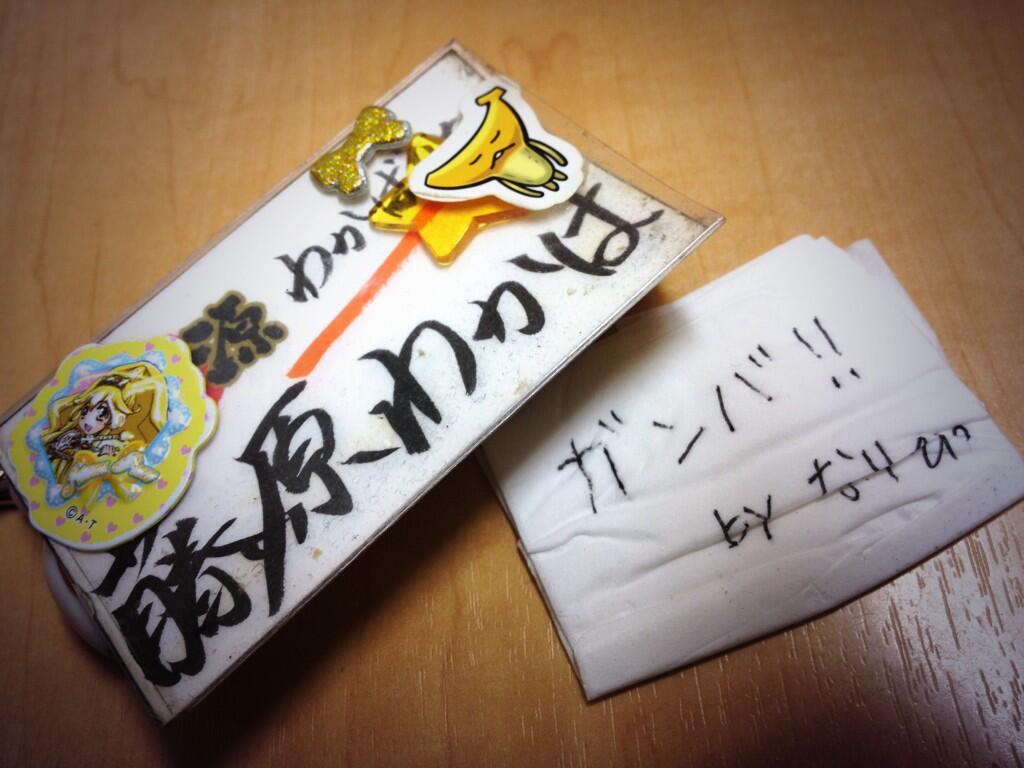 藤原わかば
源
わかば
©A·T
ガンバ!!
by なりひ